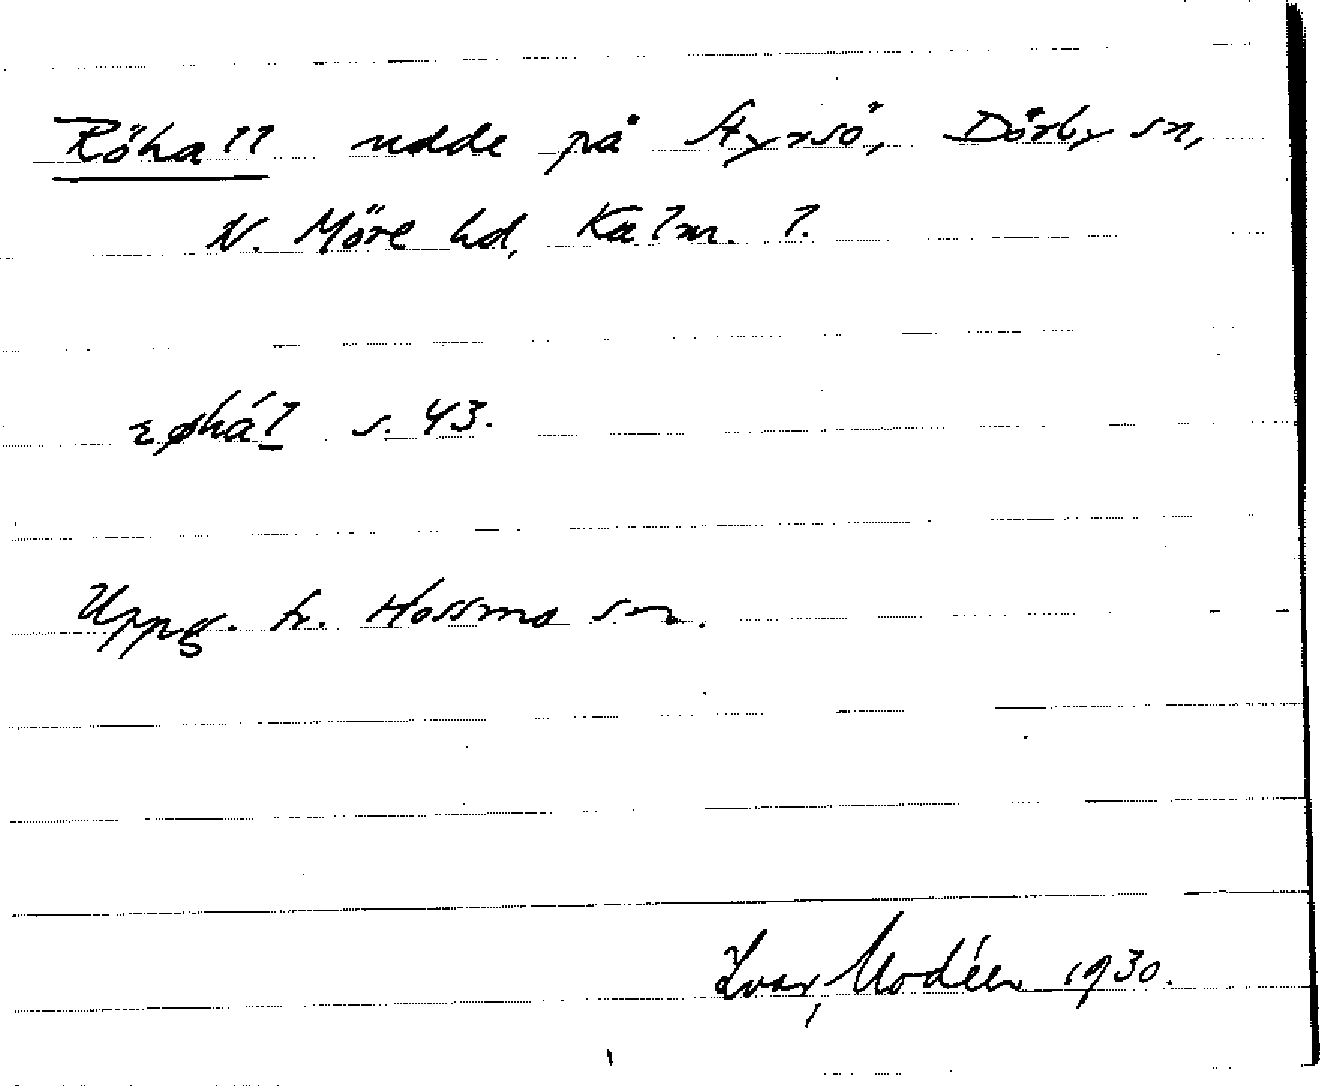 Röhall udde på Styrsö, Dörby sn,
N. Möre hd, Kalm. l.
s. 43.
Uppg. fr. Hossmo sn.
Ivar Modéer 1930.